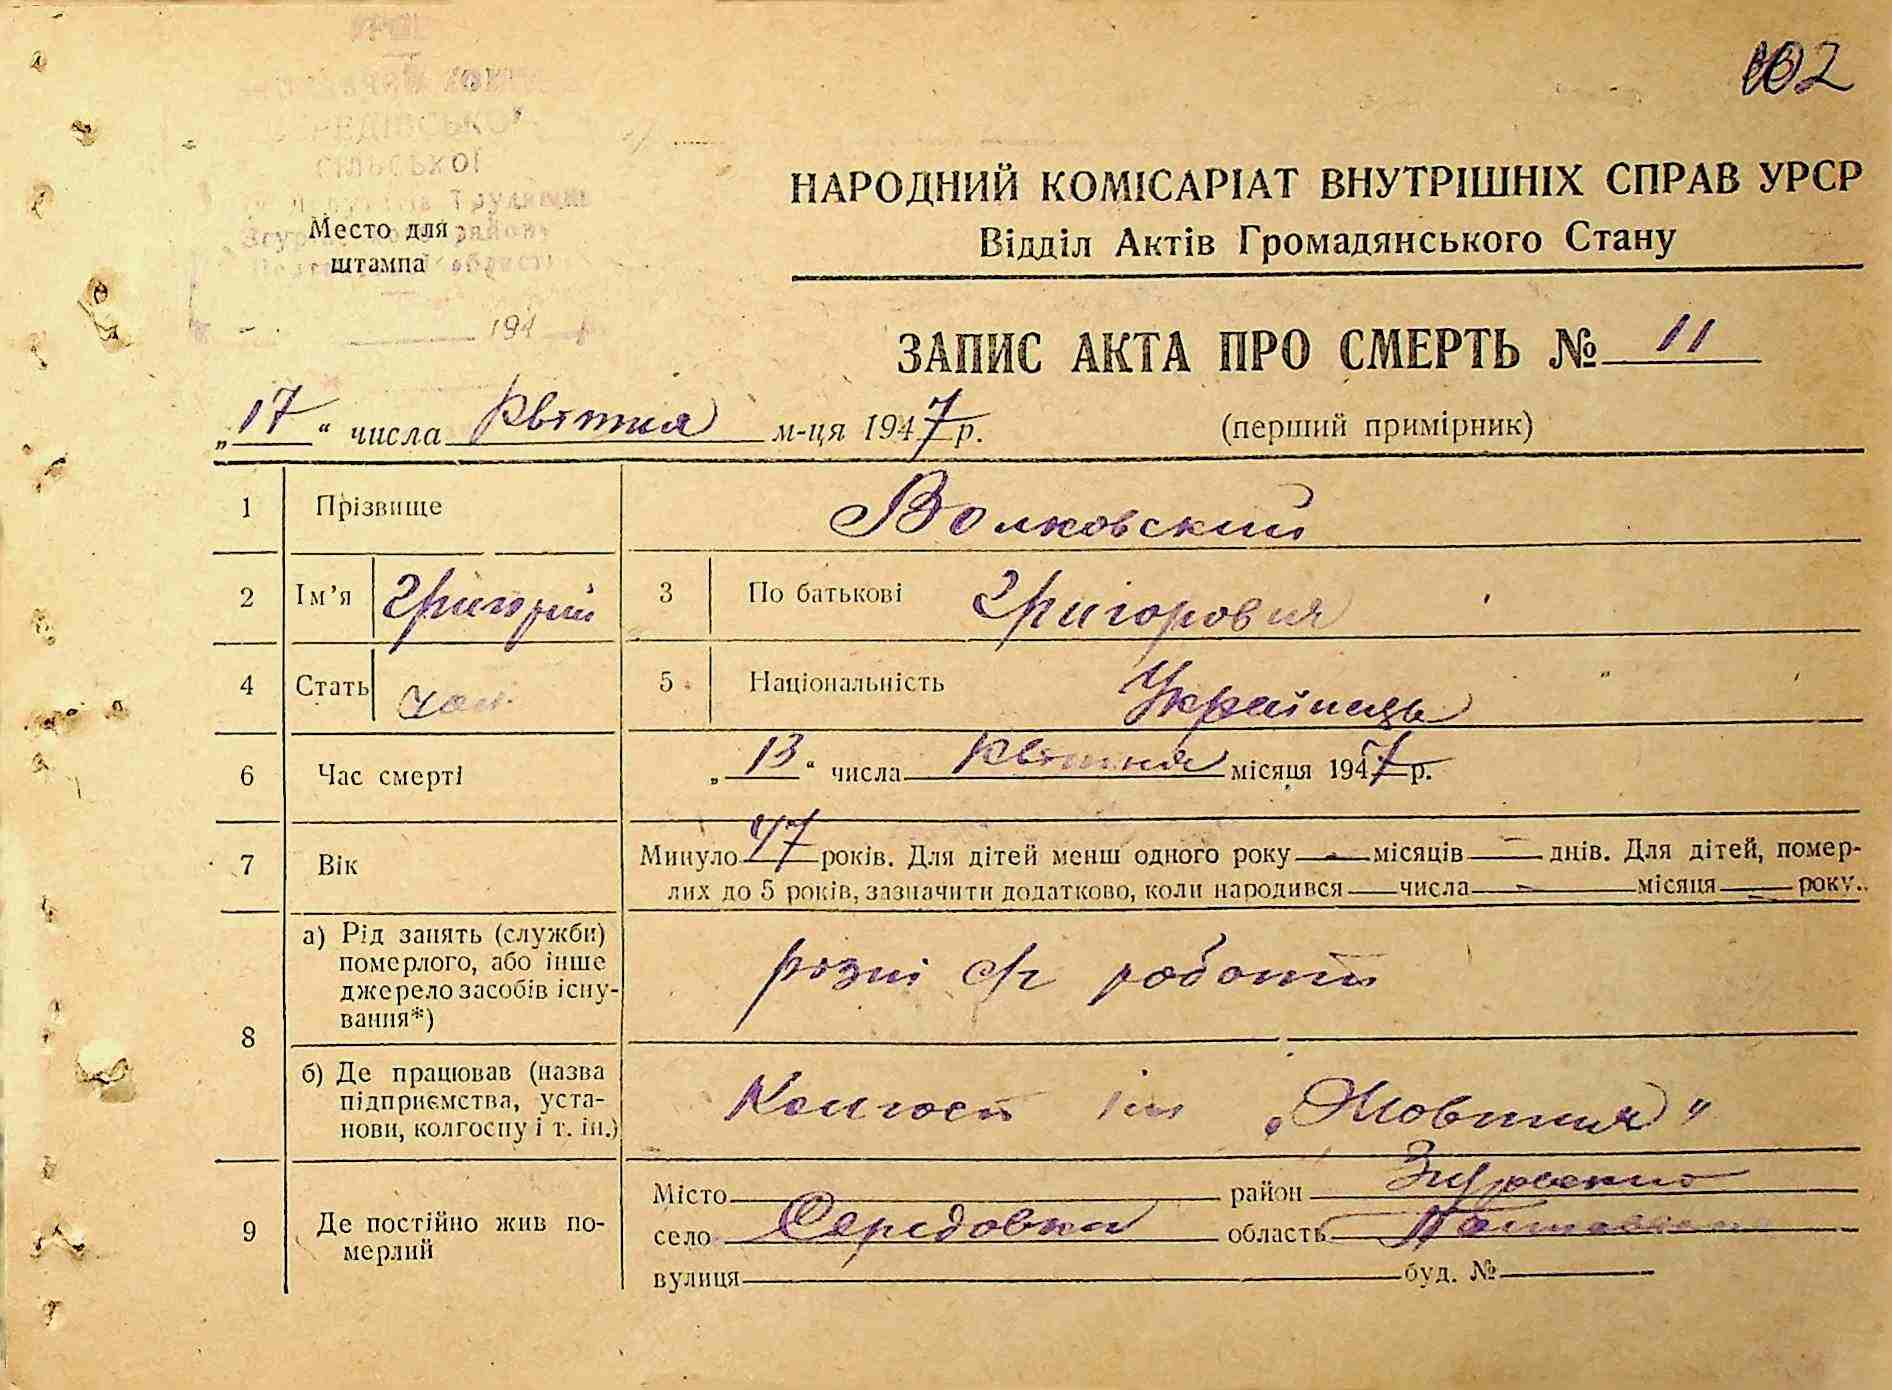 102
СІЛЬСЬКОЇ
Трудящих
Згурівського району
Полтавської області
Место для
штампа
194
НАРОДНИЙ КОМІСАРІАТ ВНУТРІШНІХ СПРАВ УРСР
Відділ Актів Громадянського Стану
ЗАПИС АКТА ПРО СМЕРТЬ № 11
„17“ числа Квітня м-ця 1947 р. (перший примірник)
1 Прізвище Волковский
2 Ім’я Григорий 3 По батькові Григоровия
4 Стать чол. 5 Національність Українець
6 Час смерті „13“ числа Квітня місяця 1947 р.
7 Вік Минуло 47 років. Для дітей менш одного року — місяців — днів. Для дітей, помер-
лих до 5 років, зазначити додатково, коли народився — числа — місяця — року.
8 а) Рід занять (служби) померлого, або інше джерело засобів існу-вання*) розні с/г роботи
б) Де працював (назва підприємства, уста-нови, колгоспу і т. ін.) Колгосп ім „Жовтня"
9 Де постійно жив по-мерлий Місто район Згурівського
село Середовка область Полтавська
вулиця буд. №